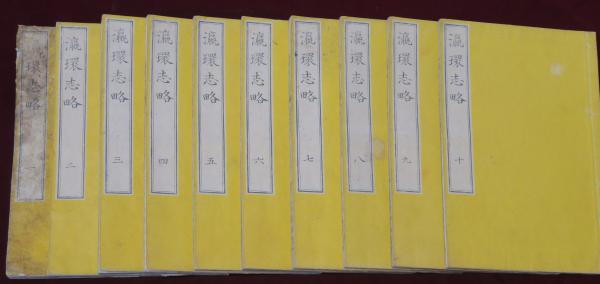 環志略
瀛環志略
二
瀛環志略
三
瀛環志略
四
瀛環志略
五
瀛環志略
六
瀛環志略
七
瀛環志略
八
瀛環志略
九
瀛環志略
十